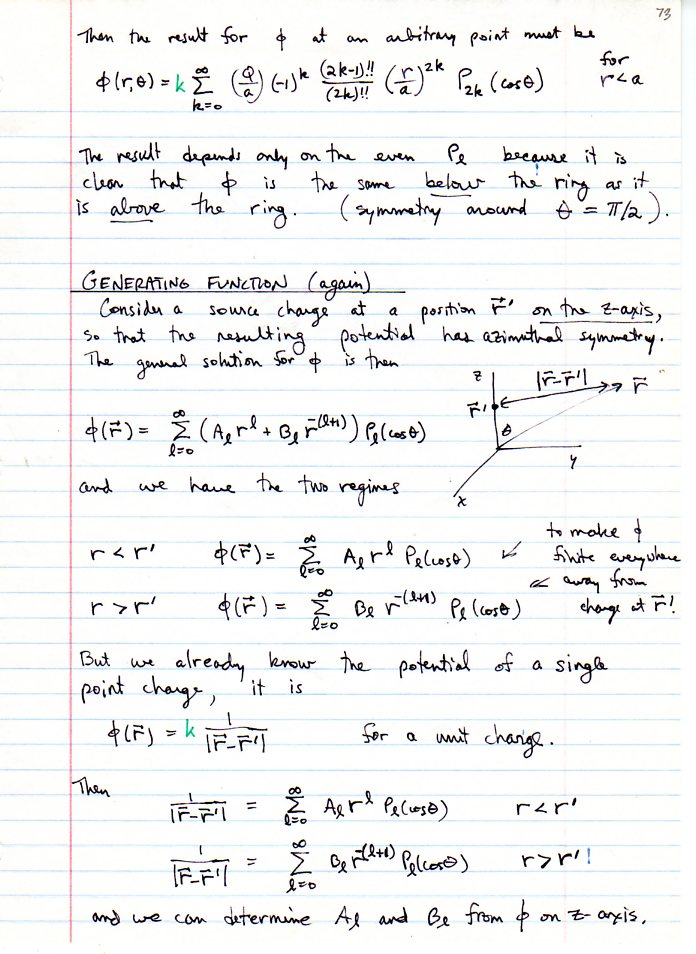 73
Then the result for ϕ at an arbitrary point must be
ϕ(r,θ) = k ∑_{k=0}^{∞} (Q/a) (-1)^k (2k-1)!!/(2k)!! (r/a)^{2k} P_{2k}(cosθ) for r<a
The result depends only on the even P_ℓ because it is
clear that ϕ is the same below the ring as it
is above the ring. (symmetry around θ = π/2).
GENERATING FUNCTION (again)
Consider a source charge at a position r⃗' on the z-axis,
so that the resulting potential has azimuthal symmetry.
The general solution for ϕ is then
z |r⃗-r⃗'| r⃗
r⃗'
θ
ϕ(r⃗) = ∑_{ℓ=0}^{∞} (A_ℓ r^ℓ + B_ℓ r^{-(ℓ+1)}) P_ℓ(cosθ)
y
x
and we have the two regimes
r < r' ϕ(r⃗) = ∑_{ℓ=0}^{∞} A_ℓ r^ℓ P_ℓ(cosθ)
r > r' ϕ(r⃗) = ∑_{ℓ=0}^{∞} B_ℓ r^{-(ℓ+1)} P_ℓ(cosθ)
to make ϕ
finite everywhere
away from
charge at r⃗'!
But we already know the potential of a single
point charge, it is
ϕ(r⃗) = k 1/|r⃗-r⃗'| for a unit charge.
Then
1/|r⃗-r⃗'| = ∑_{ℓ=0}^{∞} A_ℓ r^ℓ P_ℓ(cosθ) r < r'
1/|r⃗-r⃗'| = ∑_{ℓ=0}^{∞} B_ℓ r^{-(ℓ+1)} P_ℓ(cosθ) r > r'!
and we can determine A_ℓ and B_ℓ from ϕ on z-axis.